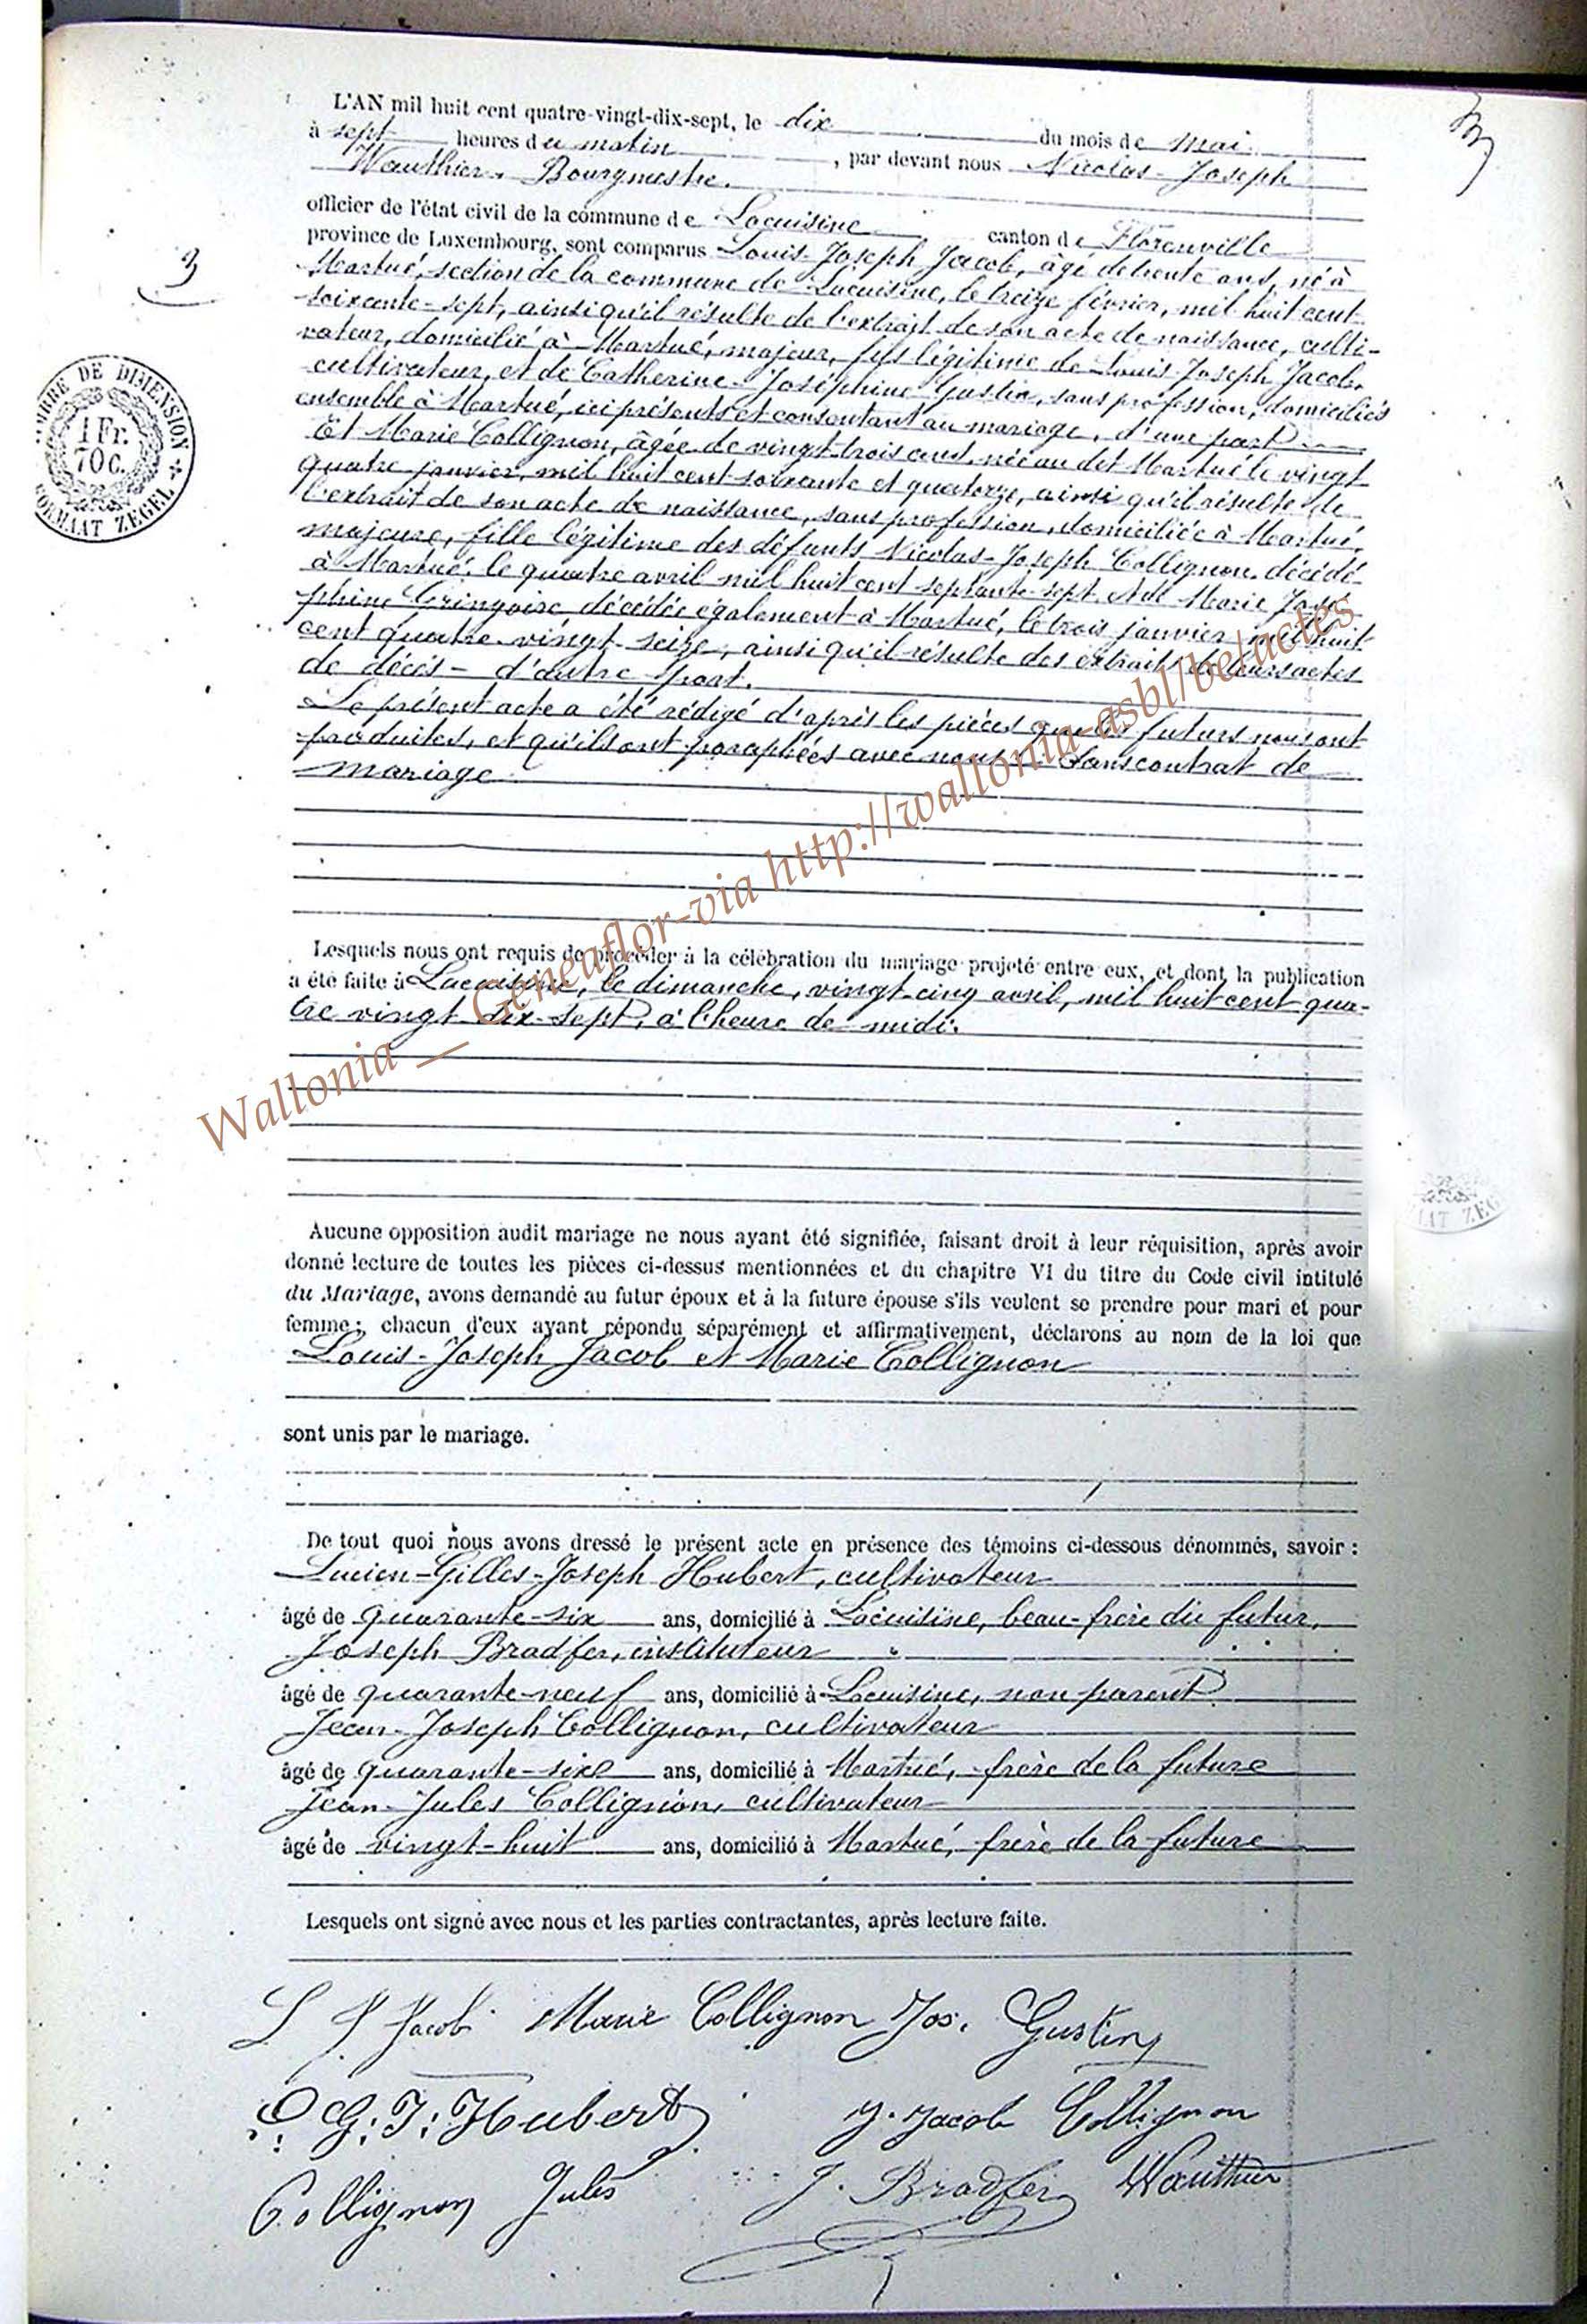 L'AN mil huit cent quatre-vingt-dix-sept, le dix du mois de mai
à sept heures du matin, par devant nous Nicolas-Joseph
Wauthier, Bourgmestre.
officier de l'état civil de la commune de Lacuisine canton de Florenville
province de Luxembourg, sont comparus Louis-Joseph Jacob, âgé de trente ans, né à
Martué, section de la commune de Lacuisine, le treize février, mil huit cent
soixante-sept, ainsi qu'il résulte de l'extrait de son acte de naissance, culti-
vateur, domicilié à Martué, majeur, fils légitime de Louis-Joseph Jacob,
cultivateur, et de Catherine-Joséphine Gustin, sans profession, domiciliés
ensemble à Martué, ici présents et consentant au mariage, d'une part
Et Marie Collignon, âgée de vingt-trois ans, née au dit Martué le vingt
quatre janvier, mil huit cent soixante et quatorze, ainsi qu'il résulte de
l'extrait de son acte de naissance, sans profession, domiciliée à Martué,
majeure, fille légitime des défunts Nicolas-Joseph Collignon, décédé
à Martué, le quatre avril mil huit cent septante-sept, et de Marie José-
phine Gringoire décédée également à Martué, le trois janvier mil huit
cent quatre-vingt-seize, ainsi qu'il résulte des extraits de leurs actes
de décès - d'autre part.
Le présent acte a été rédigé d'après les pièces que les futurs nous ont
produites, et qu'ils ont paraphées avec nous. Sans contrat de
mariage
Lesquels nous ont requis de procéder à la célébration du mariage projeté entre eux, et dont la publication
a été faite à Lacuisine, le dimanche, vingt-cinq avril, mil huit cent qua-
tre vingt-dix-sept, à l'heure de midi.
Aucune opposition audit mariage ne nous ayant été signifiée, faisant droit à leur réquisition, après avoir
donné lecture de toutes les pièces ci-dessus mentionnées et du chapitre VI du titre du Code civil intitulé
du Mariage, avons demandé au futur époux et à la future épouse s'ils veulent se prendre pour mari et pour
femme; chacun d'eux ayant répondu séparément et affirmativement, déclarons au nom de la loi que
Louis-Joseph Jacob et Marie Collignon
sont unis par le mariage.
De tout quoi nous avons dressé le présent acte en présence des témoins ci-dessous dénommés, savoir :
Lucien-Gilles-Joseph Hubert, cultivateur
âgé de quarante-six ans, domicilié à Lacuisine, beau-frère du futur,
Joseph Bradfer, instituteur
âgé de quarante-neuf ans, domicilié à Lacuisine, non parent
Jean-Joseph Collignon, cultivateur
âgé de quarante-six ans, domicilié à Martué, frère de la future
Jean-Jules Collignon, cultivateur
âgé de vingt-huit ans, domicilié à Martué, frère de la future
Lesquels ont signé avec nous et les parties contractantes, après lecture faite.
L J Jacob Marie Collignon Jos. Gustin
L: G: J: Hubert J. Jacob Collignon
Collignon Jules J. Bradfer Wauthier
TIMBRE DE DIMENSION
1 Fr.
70 C.
FORMAAT ZEGEL
3
Wallonia __ Geneaflor-via http://wallonia-asbl/be/actes